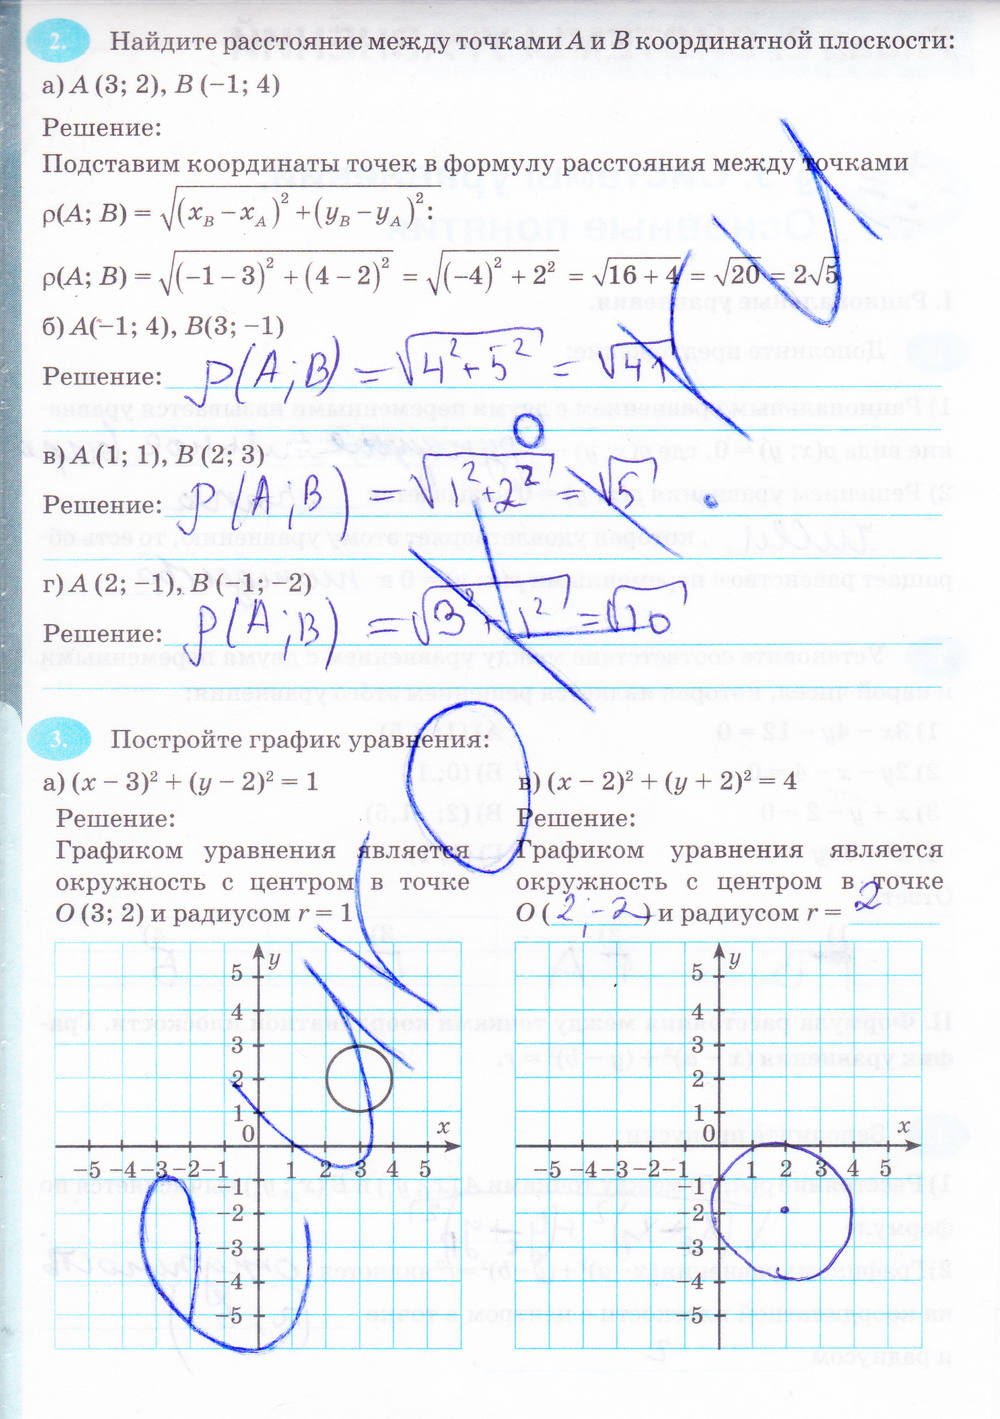 2. Найдите расстояние между точками A и B координатной плоскости:
а) A (3; 2), B (−1; 4)
Решение:
Подставим координаты точек в формулу расстояния между точками
ρ(A; B) = √((x_B − x_A)² + (y_B − y_A)²):
ρ(A; B) = √((−1 − 3)² + (4 − 2)²) = √((−4)² + 2²) = √(16 + 4) = √20 = 2√5
б) A(−1; 4), B(3; −1)
Решение: ρ(A;B) = √(4² + 5²) = √41
в) A (1; 1), B (2; 3)
Решение: ρ(A;B) = √(1² + 2²) = √5
г) A (2; −1), B (−1; −2)
Решение: ρ(A;B) = √(3² + 1²) = √10
3. Постройте график уравнения:
а) (x − 3)² + (y − 2)² = 1
Решение:
Графиком уравнения является
окружность с центром в точке
O (3; 2) и радиусом r = 1
y
5
4
3
2
1
0
x
−5 −4 −3 −2 −1 1 2 3 4 5
−1
−2
−3
−4
−5
в) (x − 2)² + (y + 2)² = 4
Решение:
Графиком уравнения является
окружность с центром в точке
O (2; −2) и радиусом r = 2
y
5
4
3
2
1
0
x
−5 −4 −3 −2 −1 1 2 3 4 5
−1
−2
−3
−4
−5